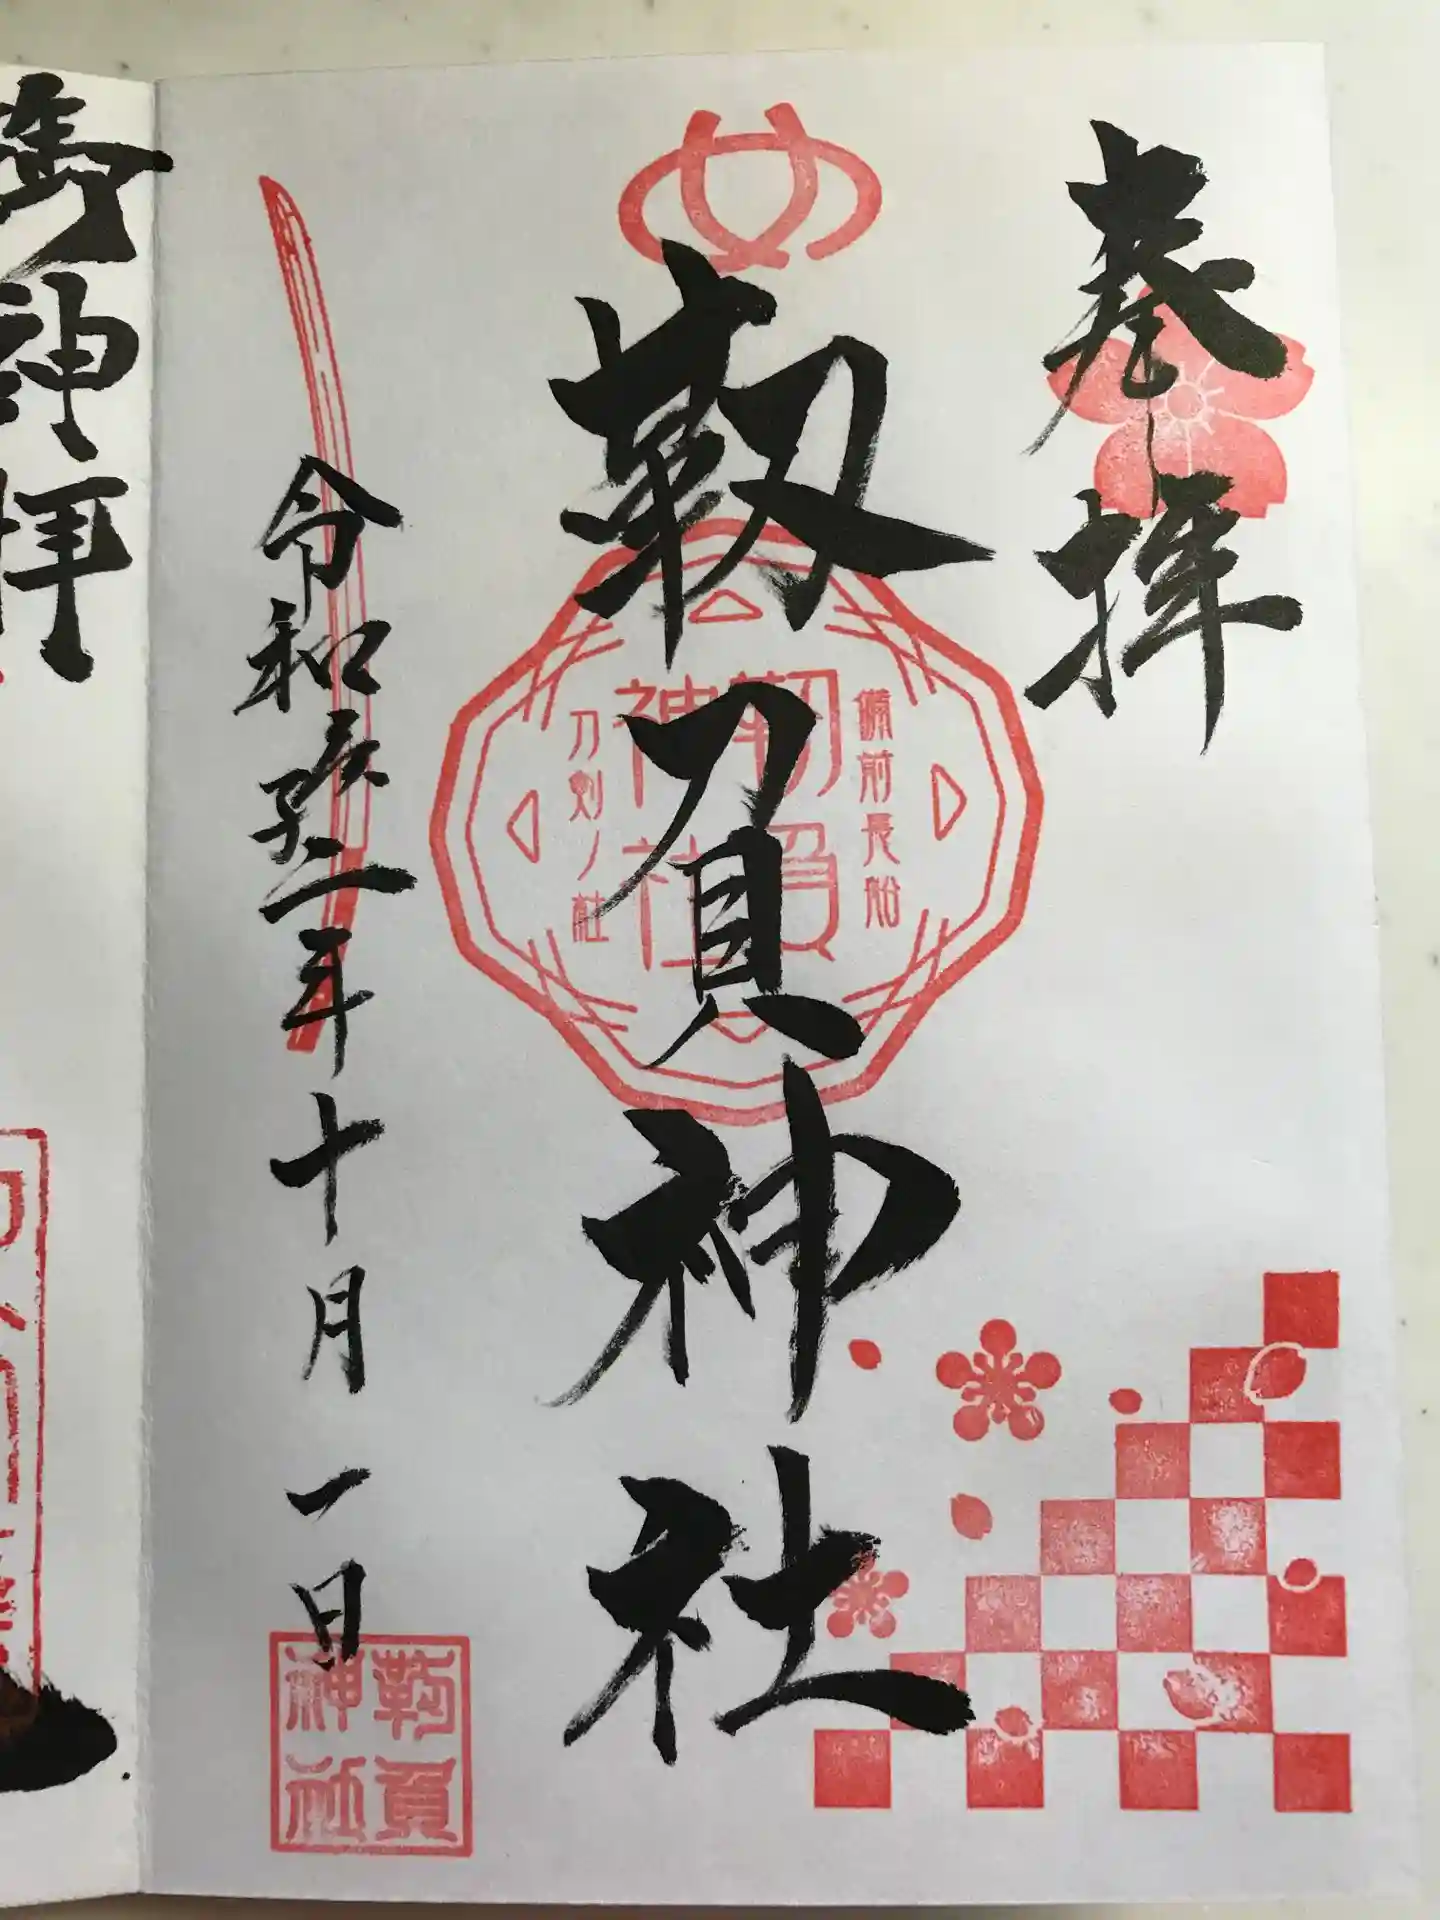 奉拝
靱負神社
令和弐年十月一日
備前長船
靱負
神社
刀剣ノ社
靱負
神社
御神拝